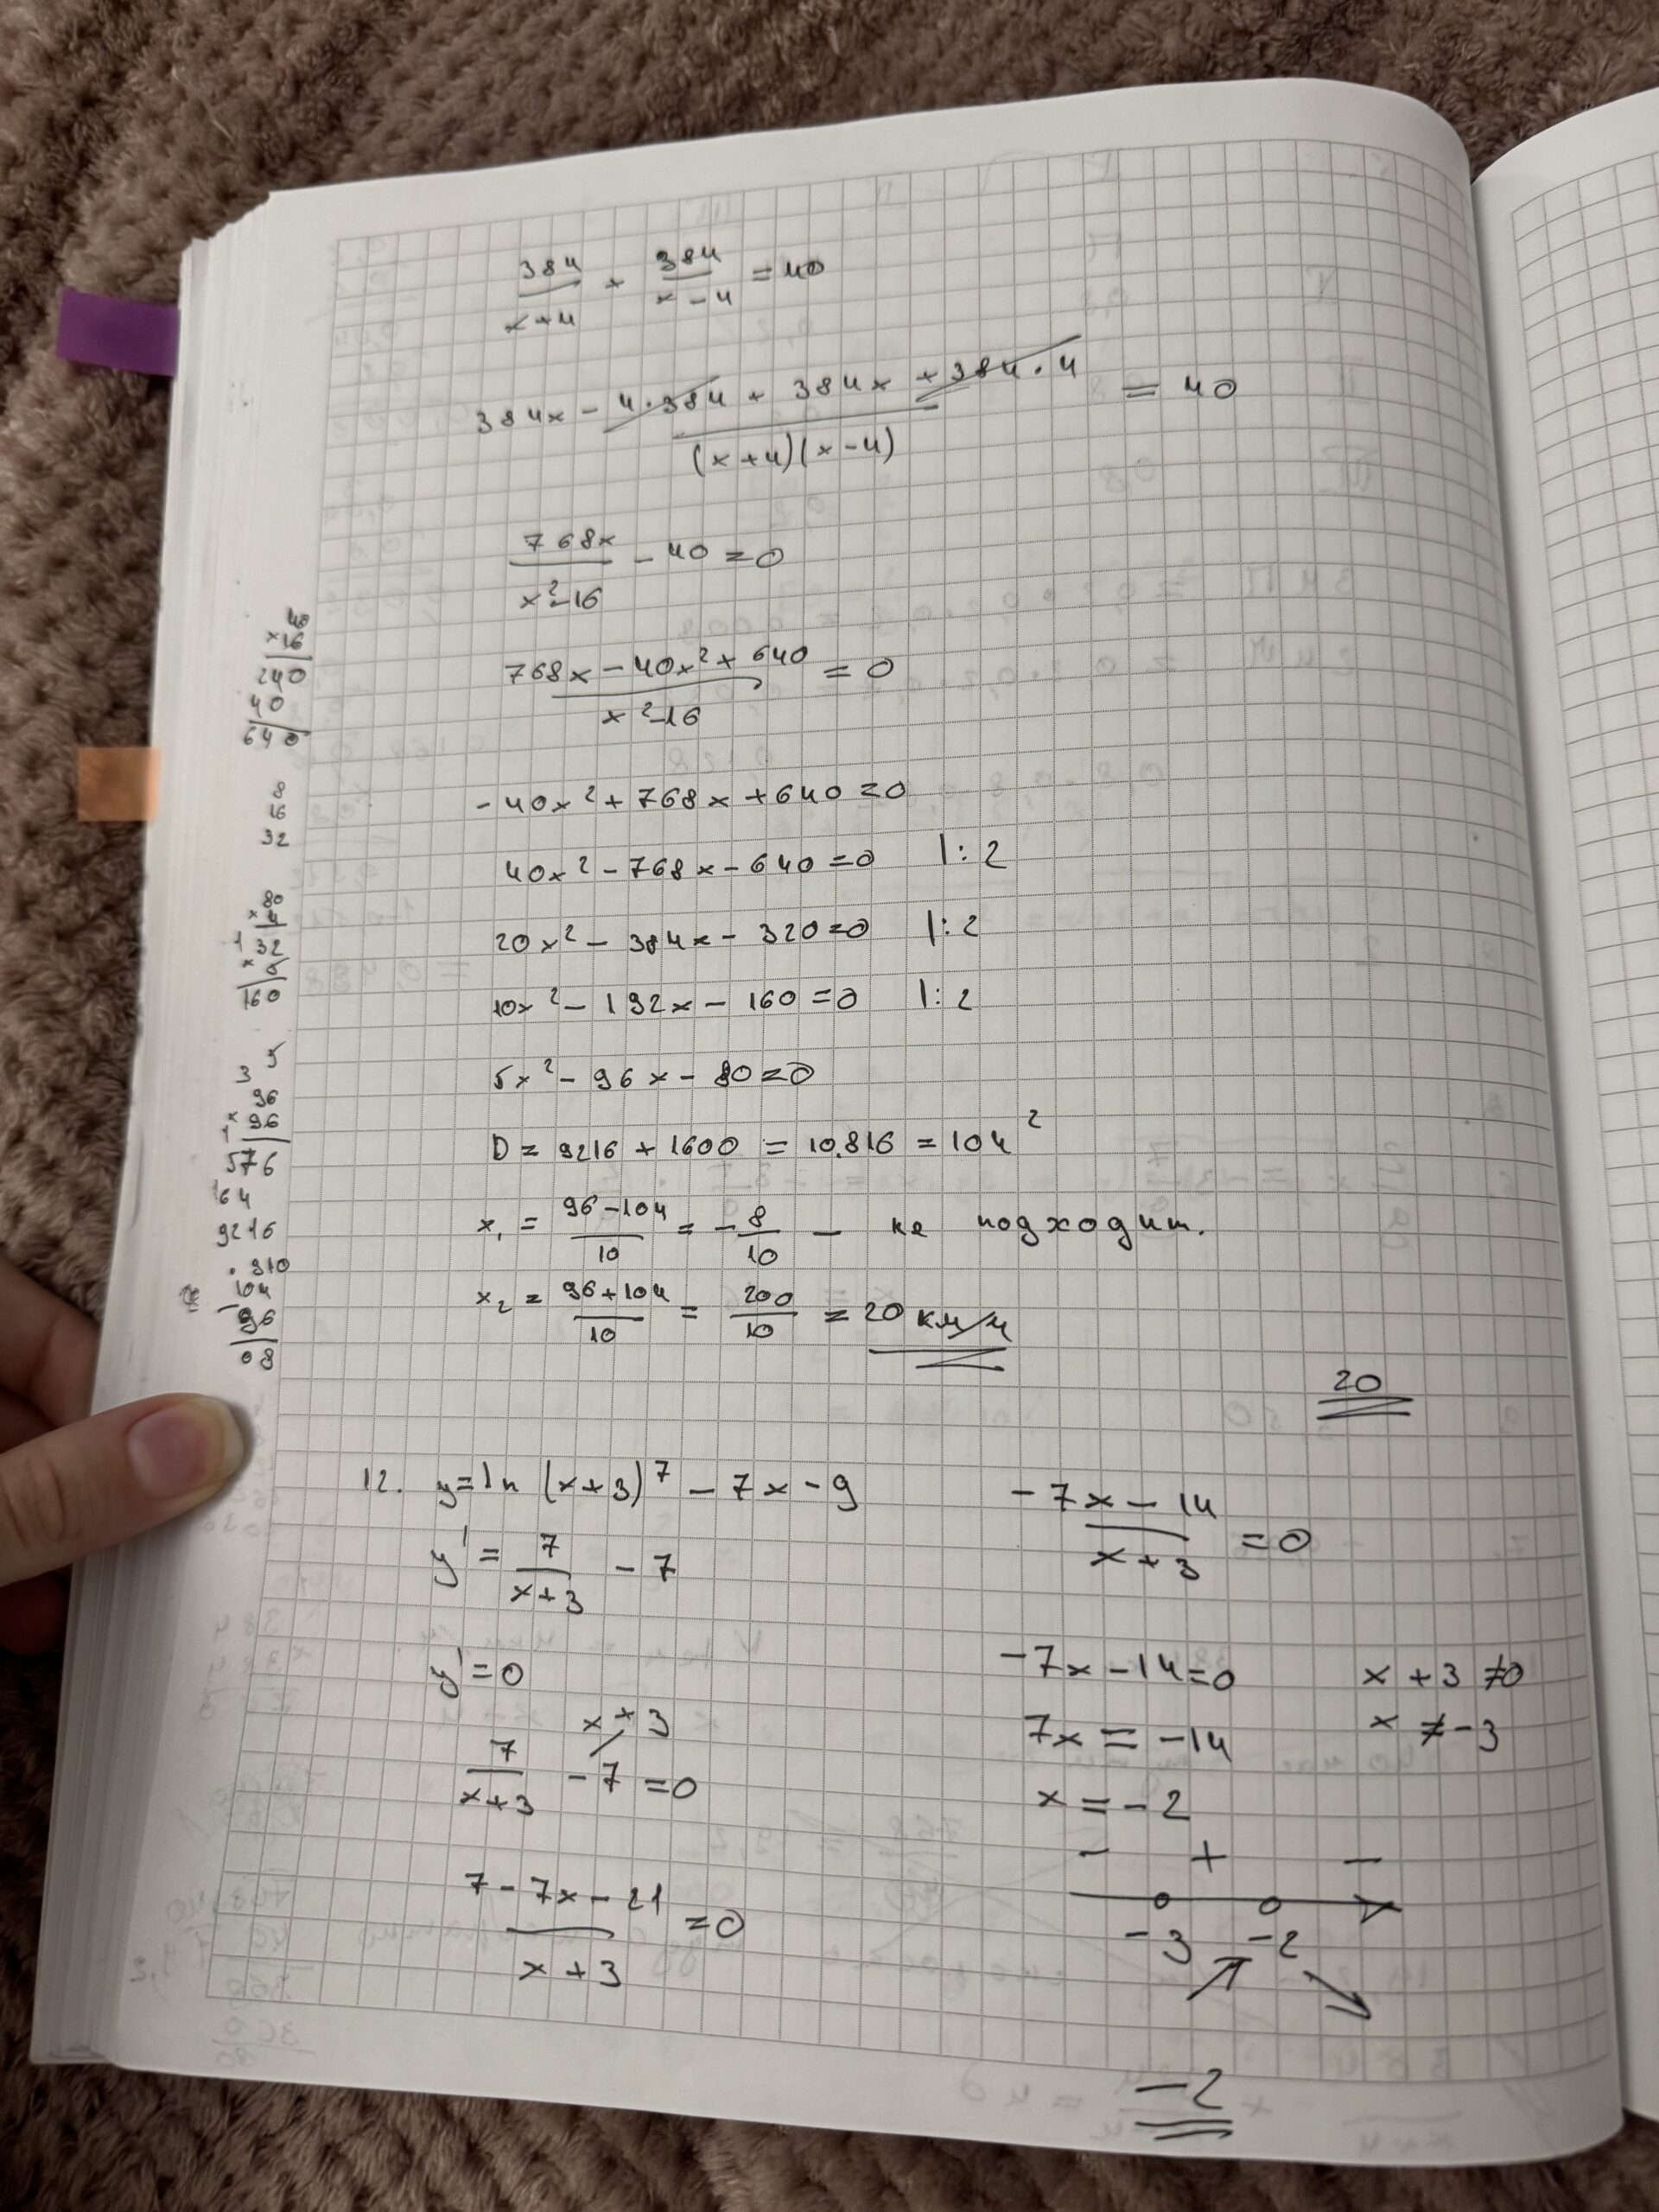 384/(x+4) + 384/(x-4) = 40
(384x - 4·384 + 384x + 384·4)/((x+4)(x-4)) = 40
768x/(x²-16) - 40 = 0
(768x - 40x² + 640)/(x²-16) = 0
-40x² + 768x + 640 = 0
40x² - 768x - 640 = 0 |:2
20x² - 384x - 320 = 0 |:2
10x² - 192x - 160 = 0 |:2
5x² - 96x - 80 = 0
D = 9216 + 1600 = 10.816 = 104²
x₁ = (96-104)/10 = -8/10 — не подходит.
x₂ = (96+104)/10 = 200/10 = 20 км/ч
20
40
×16
240
40
640
8
16
32
80
×4
1 32
×5
160
5
3
96
×96
1
576
164
9216
.910
104
96
08
12. y = ln (x+3)⁷ - 7x - 9
y' = 7/(x+3) - 7
y' = 0
7/(x+3) - 7 = 0
x+3
(7 - 7x - 21)/(x+3) = 0
(-7x - 14)/(x+3) = 0
-7x - 14 = 0 x + 3 ≠ 0
7x = -14 x ≠ -3
x = -2
- + -
-3 -2
-2